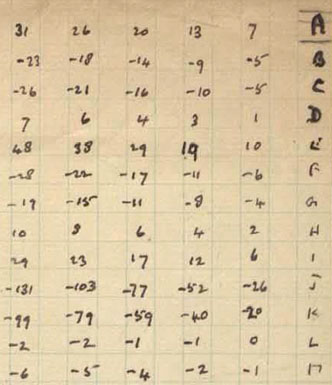 31 26 20 13 7 A
-23 -18 -14 -9 -5 B
-26 -21 -16 -10 -5 C
7 6 4 3 1 D
48 38 29 19 10 E
-28 -22 -17 -11 -6 F
-19 -15 -11 -8 -4 G
10 8 6 4 2 H
29 23 17 12 6 I
-131 -103 -77 -52 -26 J
-99 -79 -59 -40 -20 K
-2 -2 -1 -1 0 L
-6 -5 -4 -2 -1 M